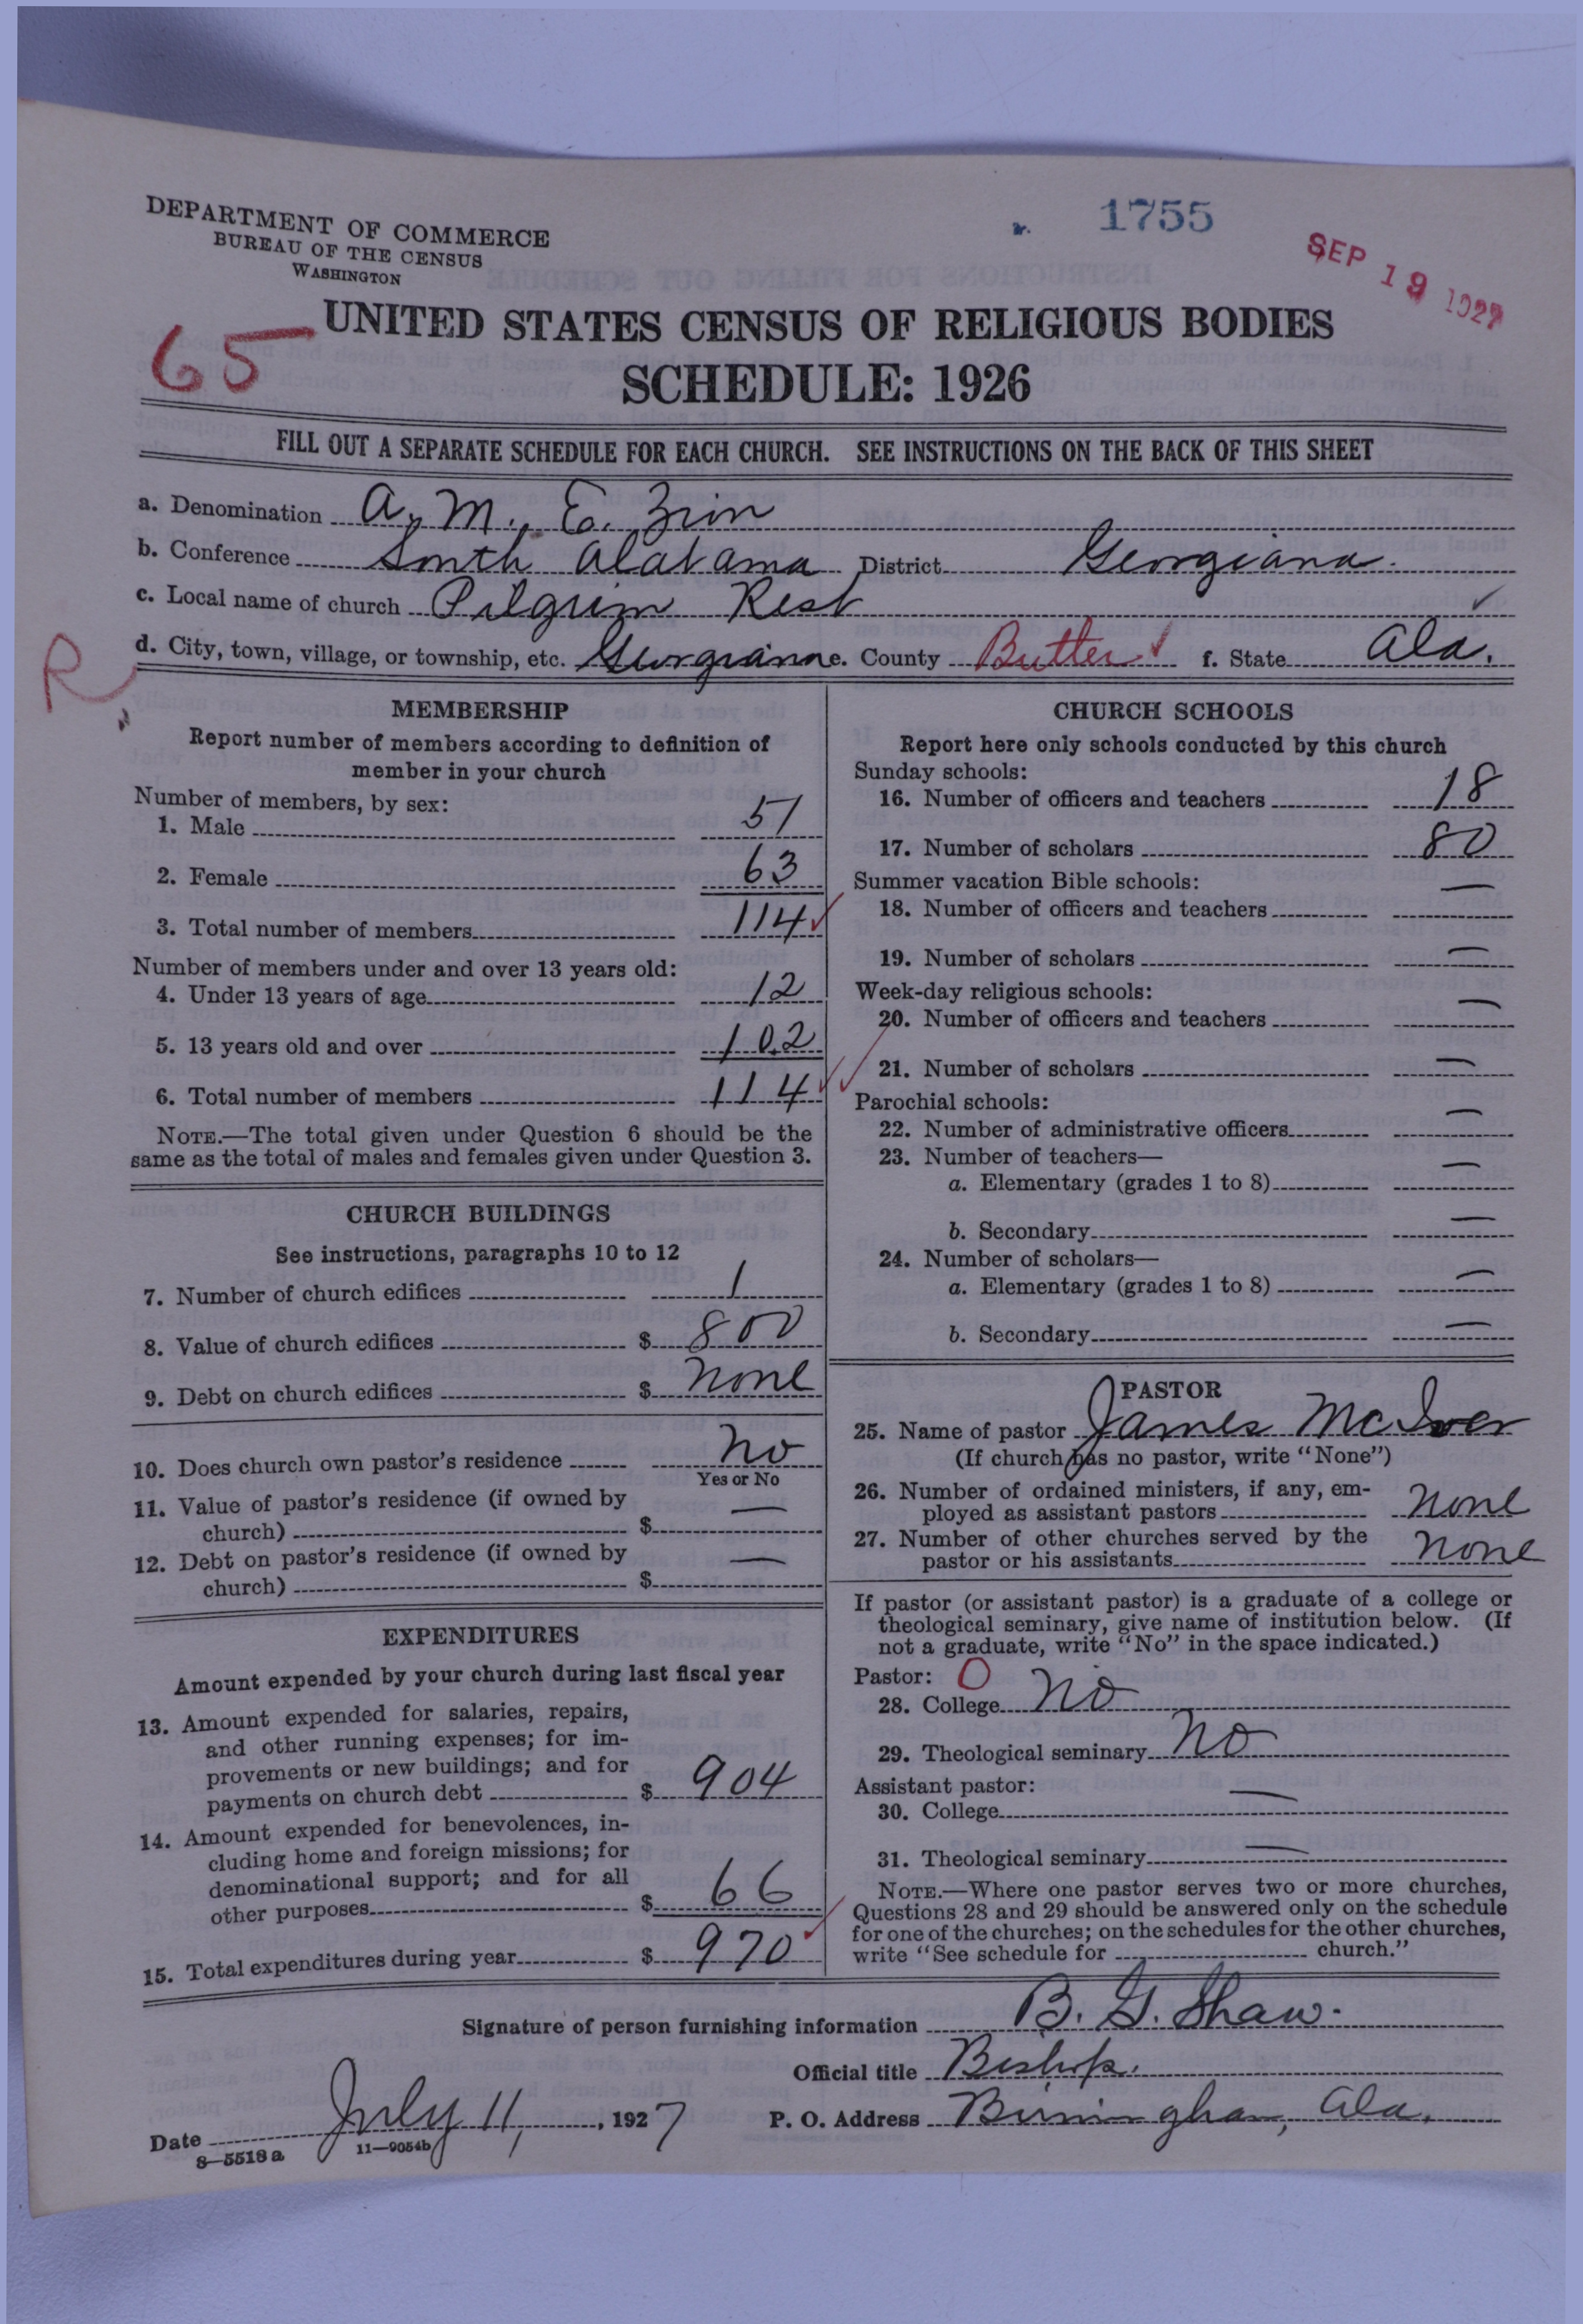 DEPARTMENT OF COMMERCE
BUREAU OF THE CENSUS
WASHINGTON
1755
SEP 19 1927
65
UNITED STATES CENSUS OF RELIGIOUS BODIES
SCHEDULE: 1926
FILL OUT A SEPARATE SCHEDULE FOR EACH CHURCH. SEE INSTRUCTIONS ON THE BACK OF THIS SHEET
a. Denomination A. M. E. Zion
b. Conference South Alabama District Georgiana.
c. Local name of church Pilgrim Rest ✓
R
d. City, town, village, or township, etc. Georgiana e. County Butler ✓ f. State Ala.
MEMBERSHIP
Report number of members according to definition of
member in your church
Number of members, by sex:
1. Male 51
2. Female 63
3. Total number of members 114 ✓
Number of members under and over 13 years old:
4. Under 13 years of age 12
5. 13 years old and over 102
6. Total number of members 114 ✓✓
NOTE.—The total given under Question 6 should be the
same as the total of males and females given under Question 3.
CHURCH BUILDINGS
See instructions, paragraphs 10 to 12
7. Number of church edifices 1
8. Value of church edifices $ 800
9. Debt on church edifices $ none
10. Does church own pastor's residence No
Yes or No
11. Value of pastor's residence (if owned by
church) $ —
12. Debt on pastor's residence (if owned by
church) $ —
EXPENDITURES
Amount expended by your church during last fiscal year
13. Amount expended for salaries, repairs,
and other running expenses; for im-
provements or new buildings; and for
payments on church debt $ 904
14. Amount expended for benevolences, in-
cluding home and foreign missions; for
denominational support; and for all
other purposes $ 66
15. Total expenditures during year $ 970 ✓
CHURCH SCHOOLS
Report here only schools conducted by this church
Sunday schools:
16. Number of officers and teachers 18
17. Number of scholars 80
Summer vacation Bible schools:
18. Number of officers and teachers —
19. Number of scholars —
Week-day religious schools:
20. Number of officers and teachers —
21. Number of scholars —
Parochial schools:
22. Number of administrative officers —
23. Number of teachers—
a. Elementary (grades 1 to 8) —
b. Secondary —
24. Number of scholars—
a. Elementary (grades 1 to 8) —
b. Secondary —
PASTOR
25. Name of pastor James McIver
(If church has no pastor, write "None")
26. Number of ordained ministers, if any, em-
ployed as assistant pastors none
27. Number of other churches served by the
pastor or his assistants none
If pastor (or assistant pastor) is a graduate of a college or
theological seminary, give name of institution below. (If
not a graduate, write "No" in the space indicated.)
Pastor: 0
28. College No
29. Theological seminary No
Assistant pastor:
30. College —
31. Theological seminary —
NOTE.—Where one pastor serves two or more churches,
Questions 28 and 29 should be answered only on the schedule
for one of the churches; on the schedules for the other churches,
write "See schedule for church."
Signature of person furnishing information B. G. Shaw.
Official title Bishop.
Date July 11, 1927 P. O. Address Birmingham, Ala.
8—5518a 11—9054b